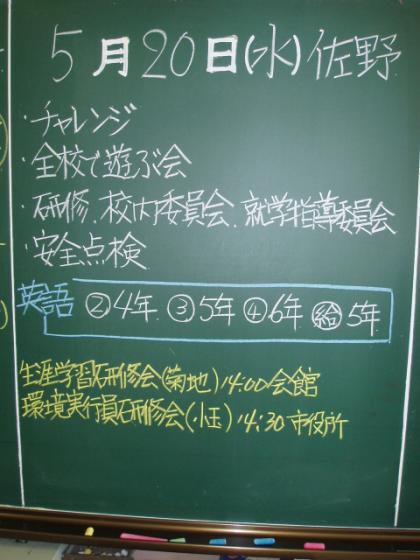 5月20日(水)佐野
・チャレンジ
・全校で遊ぶ会
・研修、校内委員会、就学指導委員会
・安全点検
英語 ②4年 ③5年 ④6年 ㊕5年
生涯学習研修会(菊地)14:00会館
環境実行員研修会(小玉)14:30市役所